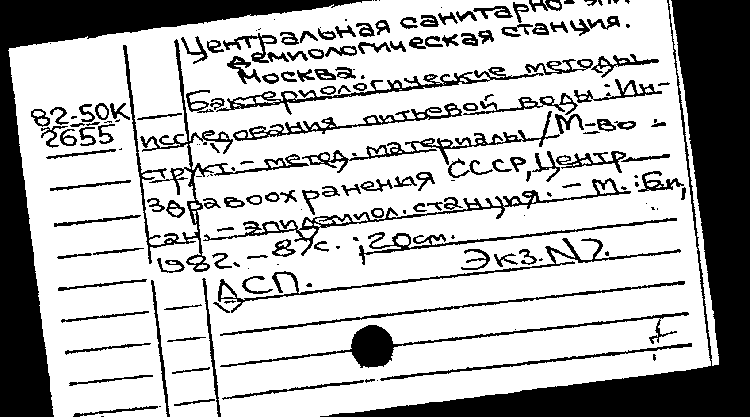 Центральная санитарно-эпи-
демиологическая станция.
Москва.
82-50К
2655
Бактериологические методы
исследования питьевой воды: Ин-
структ.-метод. материалы / М-во
здравоохранения СССР, Центр.
сан.-эпидемиол. станция. - М.: Б.и.,
1982. - 87с. ; 20см.
ДСП. Экз.N7.